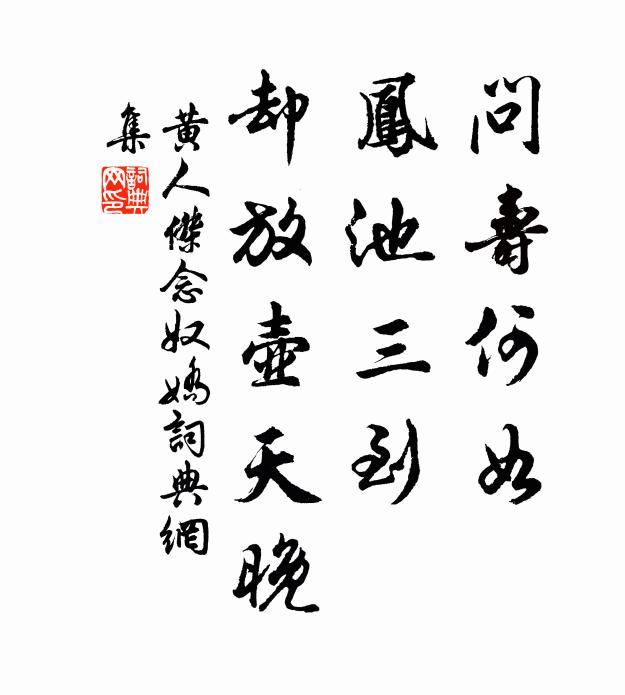 問壽何如
鳳池三到
却放壺天晚
黄人傑念奴嬌詞典網
集
詞典网印